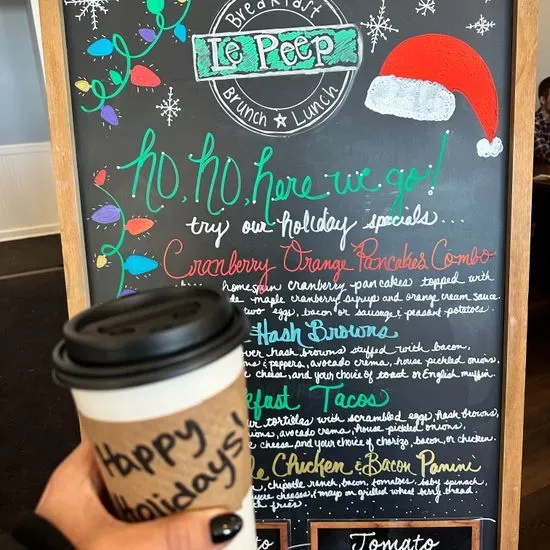 Breakfast
Le Peep
Brunch ★ Lunch
ho, ho, here we go!
try our holiday specials...
Cranberry Orange Pancakes Combo
homespun cranberry pancakes topped with
maple cranberry syrup and orange cream sauce.
two eggs, bacon or sausage & peasant potatoes.
Hash Browns
hash browns stuffed with bacon,
& peppers, avocado crema, house pickled onions,
cheese, and your choice of toast or English muffin.
Tacos
tortillas with scrambled eggs, hash browns,
avocado crema, house pickled onions,
cheese and your choice of chorizo, bacon, or chicken.
Chicken & Bacon Panini
chipotle ranch, bacon, tomatoes, baby spinach,
cheese & mayo on grilled wheat berry bread.
fries.
Happy
Holidays!
to
Tomato